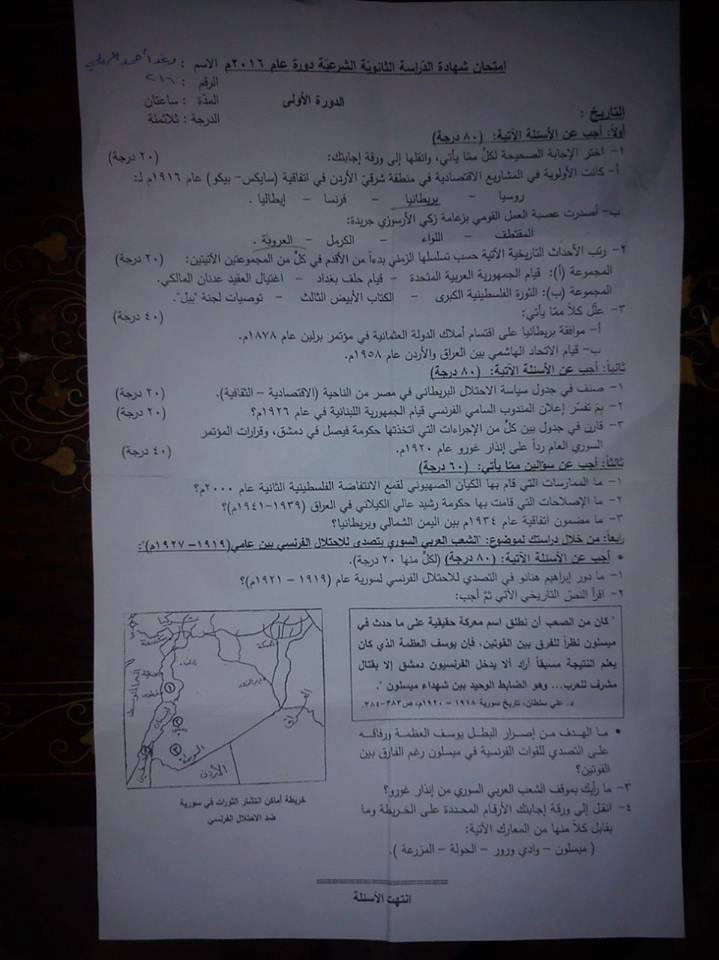 امتحان شهادة الدراسة الثانوية الشرعية دورة عام ٢٠١٦م
الاسم :
الرقم : ٢١٦
الدورة الأولى
المدّة : ساعتان
الدرجة : ثلاثمئة
التاريخ :
أولاً: أجب عن الأسئلة الآتية: (٨٠ درجة)
١- اختر الإجابة الصحيحة لكلّ ممّا يأتي، وانقلها إلى ورقة إجابتك: (٢٠ درجة)
أ- كانت الأولوية في المشاريع الاقتصادية في منطقة شرقيّ الأردن في اتفاقية (سايكس- بيكو) عام ١٩١٦م لـ:
روسيا – بريطانيا – فرنسا – إيطاليا .
ب- أصدرت عصبة العمل القومي بزعامة زكي الأرسوزي جريدة:
المقتطف – اللواء – الكرمل – العروبة .
٢- رتب الأحداث التاريخية الآتية حسب تسلسلها الزمني بدءاً من الأقدم في كلّ من المجموعتين الآتيتين: (٢٠ درجة)
المجموعة (أ): قيام الجمهورية العربية المتحدة – قيام حلف بغداد – اغتيال العقيد عدنان المالكي.
المجموعة (ب): الثورة الفلسطينية الكبرى – الكتاب الأبيض الثالث – توصيات لجنة "بيل".
٣- علّل كلاً ممّا يأتي: (٤٠ درجة)
أ- موافقة بريطانيا على اقتسام أملاك الدولة العثمانية في مؤتمر برلين عام ١٨٧٨م.
ب- قيام الاتحاد الهاشمي بين العراق والأردن عام ١٩٥٨م.
ثانياً: أجب عن الأسئلة الآتية: (٨٠ درجة)
١- صنف في جدول سياسة الاحتلال البريطاني في مصر من الناحية (الاقتصادية – الثقافية). (٢٠ درجة)
٢- بمَ تفسّر إعلان المندوب السامي الفرنسي قيام الجمهورية اللبنانية في عام ١٩٢٦م؟ (٢٠ درجة)
٣- قارن في جدول بين كلّ من الإجراءات التي اتخذتها حكومة فيصل في دمشق، وقرارات المؤتمر
السوري العام رداً على إنذار غورو عام ١٩٢٠م. (٤٠ درجة)
ثالثاً: أجب عن سؤالين ممّا يأتي: (٦٠ درجة)
١- ما الممارسات التي قام بها الكيان الصهيوني لقمع الانتفاضة الفلسطينية الثانية عام ٢٠٠٠م؟
٢- ما الإصلاحات التي قامت بها حكومة رشيد عالي الكيلاني في العراق (١٩٣٩-١٩٤١م)؟
٣- ما مضمون اتفاقية عام ١٩٣٤م بين اليمن الشمالي وبريطانيا؟
رابعاً: من خلال دراستك لموضوع: "الشعب العربي السوري يتصدى للاحتلال الفرنسي بين عامي(١٩١٩– ١٩٢٧م)":
• أجب عن الأسئلة الآتية: (٨٠ درجة) (لكلّ منها ٢٠ درجة).
١- ما دور إبراهيم هنانو في التصدي للاحتلال الفرنسي لسورية عام (١٩١٩ – ١٩٢١م)؟
٢- اقرأ النصّ التاريخي الآتي ثمّ أجب:
" كان من الصعب أن نطلق اسم معركة حقيقية على ما حدث في
ميسلون نظراً للفرق بين القوتين، فإن يوسف العظمة الذي كان
يعلم النتيجة مسبقاً أراد ألا يدخل الفرنسيون دمشق إلا بقتال
مشرف للعرب... وهو الضابط الوحيد بين شهداء ميسلون ".
د. علي سلطان، تاريخ سورية ١٩١٨ – ١٩٢٠م، ص٣٨٣-٣٨٤
• ما الهدف من إصرار البطل يوسف العظمة ورفاقه
على التصدي للقوات الفرنسية في ميسلون رغم الفارق بين
القوتين؟
٣- ما رأيك بموقف الشعب العربي السوري من إنذار غورو؟
٤- انقل إلى ورقة إجابتك الأرقام المحددة على الخريطة وما
يقابل كلاً منها من المعارك الآتية:
( ميسلون – وادي ورور – الحولة – المزرعة ).
دير الزور
العراق
الأردن
خريطة أماكن انتشار الثورات في سورية
ضد الاحتلال الفرنسي
انتهت الأسئلة